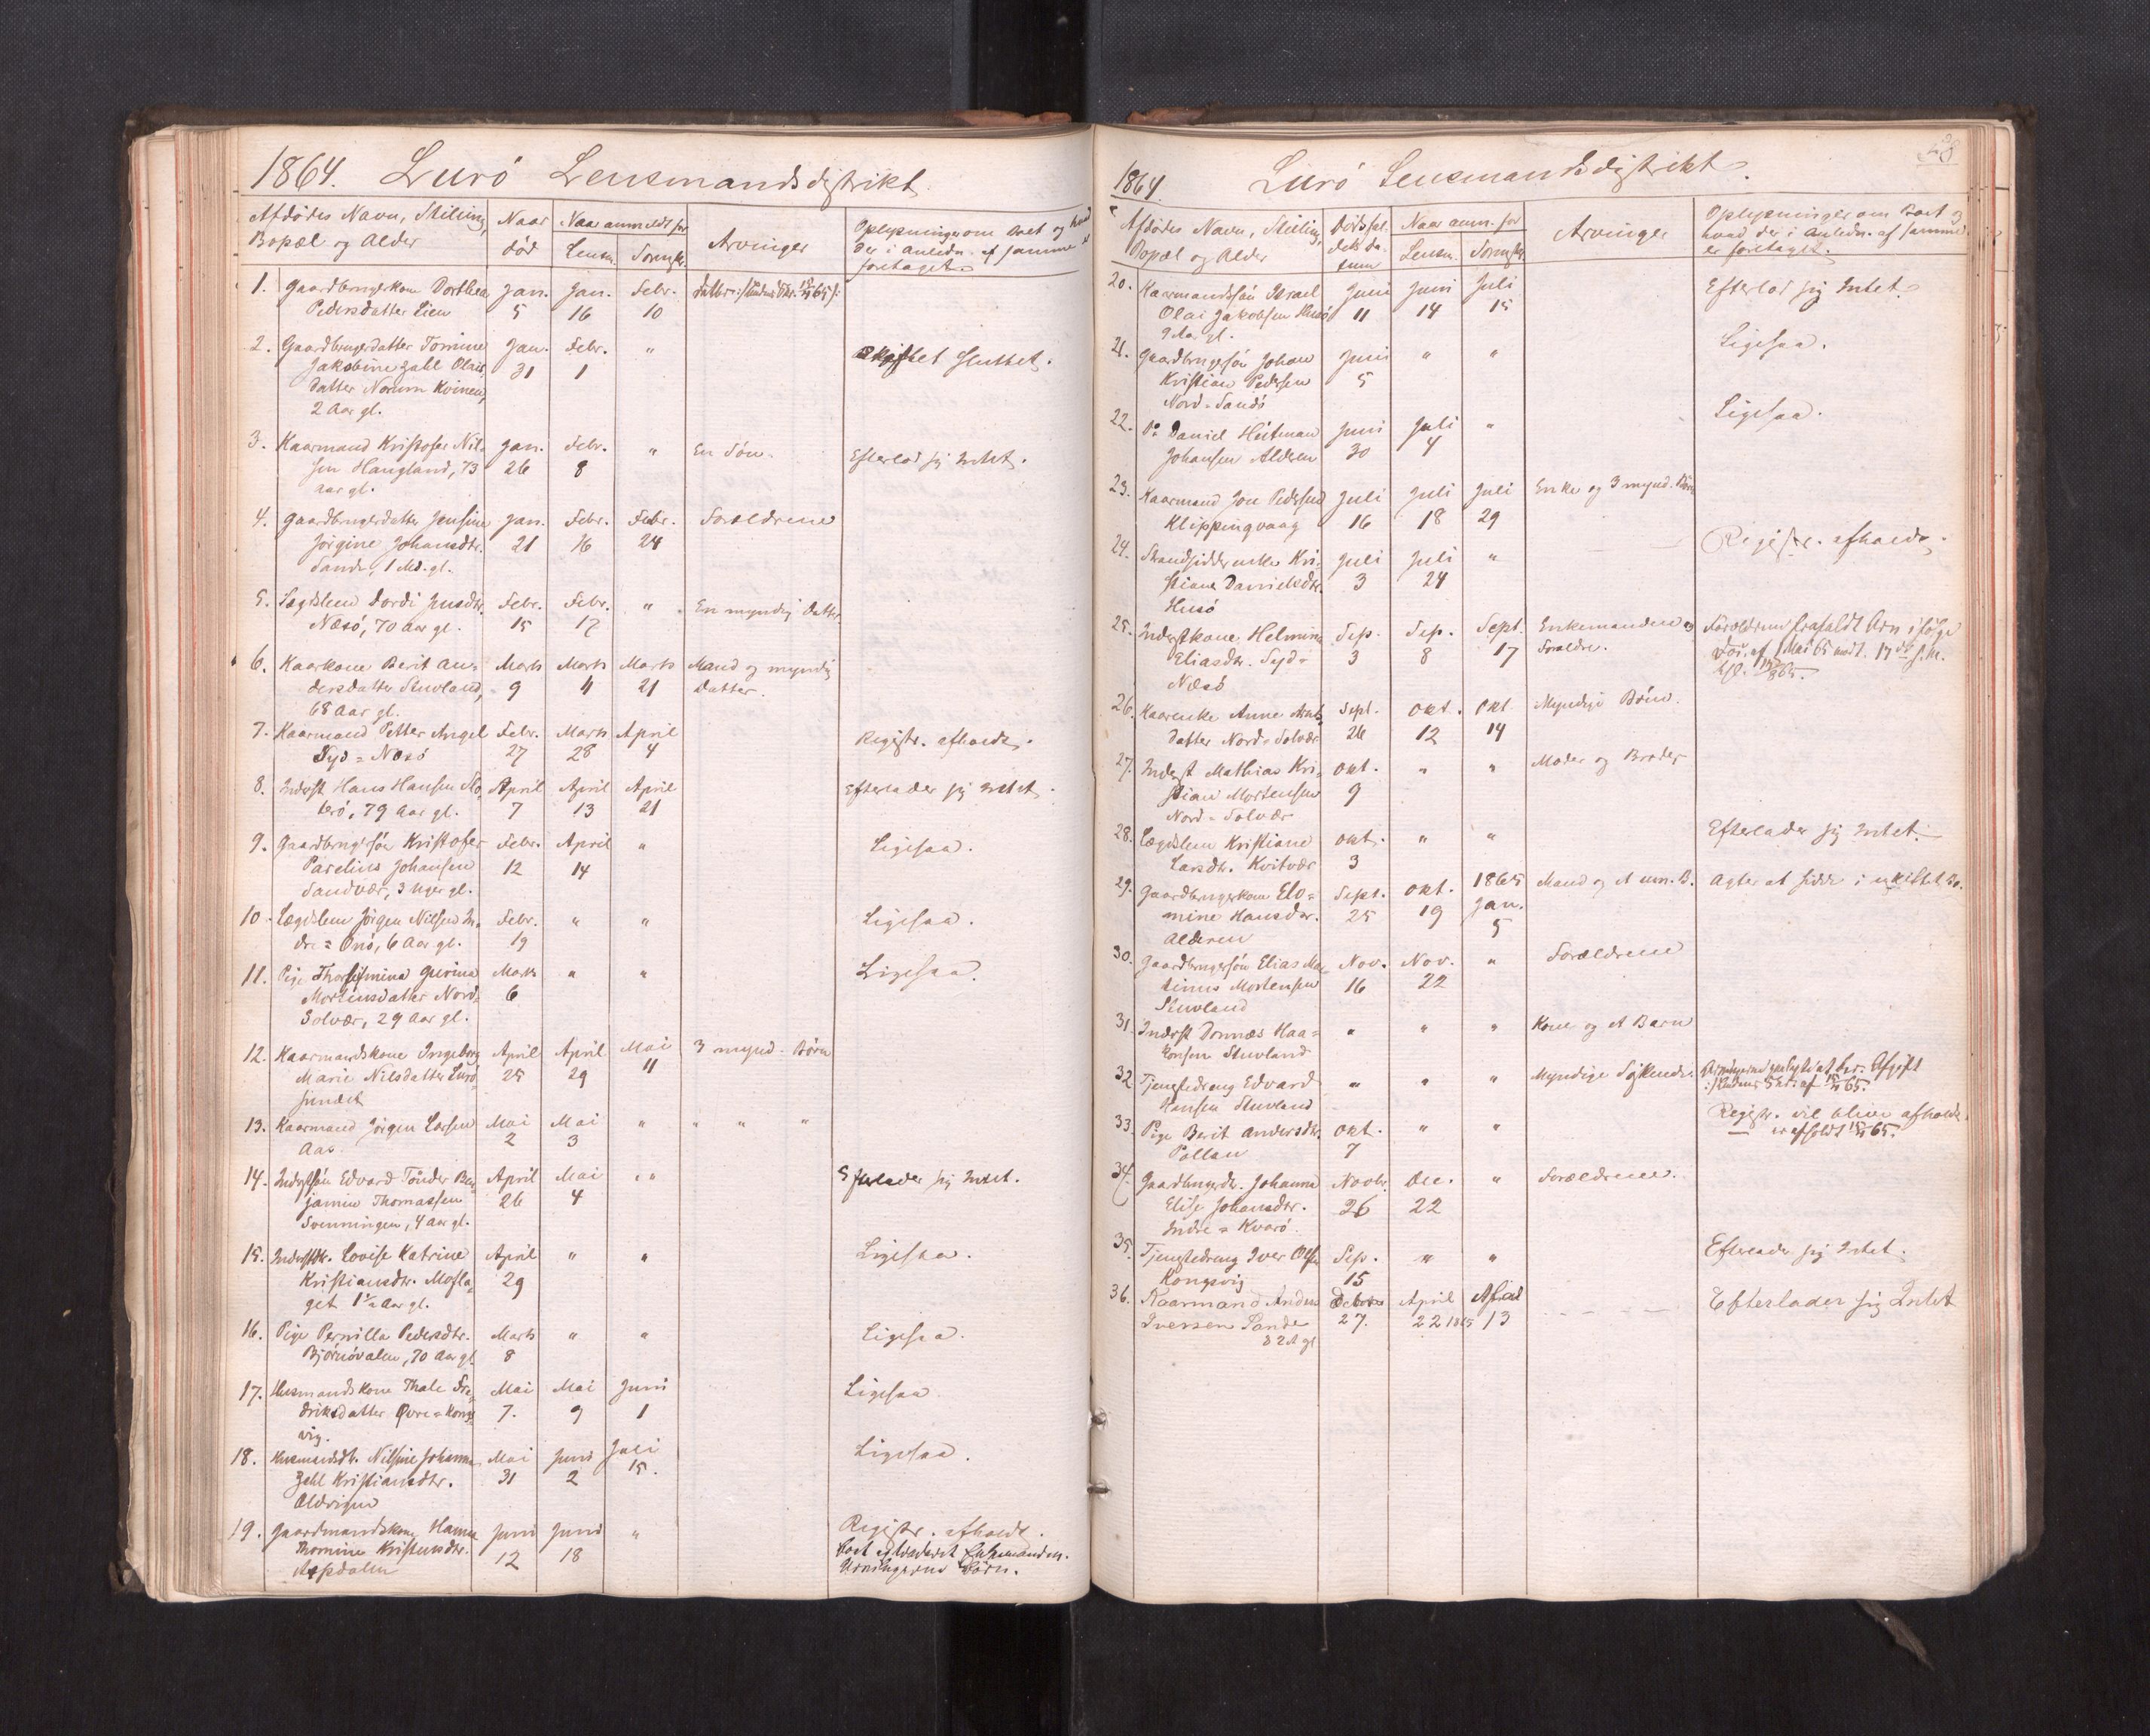 1864. Lurö Lensmandsdistrikt.
Afdödes Navn, Stilling, Bopæl og Alder | Naar död | Naar anmeldt for Lensm. | Sorenskr. | Arvinger | Oplysninger om Boet og hvad der i Anledn. af samme er foretaget.
1. Gaardbrugerkone Dorthea | Jan. | Jan. | Febr. | datter
Pedersdatter Lien | 5 | 16 | 10
2. Gaardbrugerdatter Tomine | Jan. | Febr. | "
Jakobine Zahl Olais | 31 | 1 | Skiftet sluttet.
datter Norum Kvinen,
2 Aar gl.
3. Kaarmand Kristofer Nil- | Jan. | Febr. | " | En Sön. | Efterlod sig Intet.
sen Haugland, 73 | 26 | 8
aar gl.
4. Gaardbrugerdatter Jensine | Jan. | Febr. | Febr. | Forældrene
Jörgine Johansdtr. | 21 | 16 | 24
Sande, 1 Md. gl.
5. Lægdslem Dordi Jensdtr. | Febr. | Febr. | " | En myndig Datter.
Næsö, 70 Aar gl. | 15 | 17
6. Kaarkone Berit An- | Marts | Marts | Marts | Mand og myndig
dersdatter Stuvland, | 9 | 11 | 21 | Datter.
68 Aar gl.
7. Kaarmand Petter Angel | Febr. | Marts | April | Registr. afholdt.
Syd-Næsö | 27 | 28 | 4
8. Inderst Hans Hansen Slo- | April | April | April | Efterlader sig Intet.
terö, 79 Aar gl. | 7 | 13 | 21
9. Gaardbrugersön Kristofer | Febr. | April | " | Ligesaa.
Parelius Johansen | 12 | 14
Sandvær, 3 Uger gl.
10. Lægdslem Jörgen Nilsen In- | Febr. | " | " | Ligesaa.
dre-Onö, 6 Aar gl. | 19
11. Pige Gurina | Marts | " | " | Ligesaa.
Mortensdatter Nord- | 6
Solvær, 29 Aar gl.
12. Kaarmandskone Ingeborg | April | April | Mai | 3 mynd. Börn
Marie Nilsdatter Lurö- | 25 | 29 | 11
sundet
13. Kaarmand Jörgen Larsen | Mai | Mai | " | " " "
Aas. | 2 | 3
14. Inderstsön Edvard Tönder Ben- | April | Mai | " " | Efterlader sig Intet.
jamin Thomassen | 26 | 4
Svenningen, 4 Aar gl.
15. Inderstdtr. Lovise Katrine | April | " | " | Ligesaa.
Kristiansdtr. Mosla- | 29
get 1½ Aar gl.
16. Pige Pernilla Pedersdtr. | Marts | " | " | Ligesaa.
Björnövalen, 70 Aar gl. | 8
17. Husmandskone Thale Fre- | Mai | Mai | Juni | Ligesaa
driksdatter Övre-Kongs- | 7. | 9 | 1
vig.
18. Husmandsdt. Nilsine Johanna | Mai | Juni | Juli | Ligesaa.
Zahl Kristiansdtr. | 31 | 2 | 15.
Aldrigen
19. Gaardmandskone Hanna | Juni | Juni | " | Registr. afholdt.
Thomine Kristensdtr. | 12 | 18 | Boet Enkemanden.
Aspdalen | Börn.
28
1864. Lurö Lensmandsdistrikt.
Afdödes Navn, Stilling, Bopæl og Alder | Dödsfaldets Datum | Naar anm. for Lensm. | Sorenskr. | Arvinger | Oplysninger om Boet og hvad der i Anledn. af samme er foretaget.
20. Kaarmandssön Israel | Juni | Juni | Juli | Efterlod sig Intet.
Olai Jakobsen Husö | 11 | 14 | 15
9 Aar gl.
21. Gaardbrugersön Johan | Juni | " | " | Ligesaa.
Kristian Pedersen | 5
Nord-Sandö
22. Do Daniel Heitman | Juni | Juli | " | Ligesaa.
Johansen Alderen | 30 | 4
23. Kaarmand Jon Pedersen | Juli | Juli | Juli | Enke og 3 mynd. Börn
Klippingvaag | 16 | 18 | 29
24. Strandsidderenke Kri- | Juli | Juli | " | Registr. afholdt.
stiane Danielsdtr. | 3 | 24
Husö
25. Inderstkone Helmina | Sep. | Sep. | Sept. | Enkemanden og | Forældrene frafaldt Arv ifölge
Eliasdtr. Syd- | 3 | 8 | 17 | Forældre. | af 1 Mai 65 modt. 17 s. M.
Næsö
26. Kaarenke Anne | Sept. | Okt. | Okt. | Myndige Börn.
datter Nord-Solvær | 26 | 12 | 14
27. Inderst Mathias Kri- | Okt. | " | " | Moder og Broder
stian Mortensen | 9
Nord-Solvær
28. Lægdslem Kristiane | Okt. | " | " | Efterlader sig Intet.
Larsdtr. Kvitvær | 3
29. Gaardbrugerkone Elo- | Sept. | Okt. | 1865 | Mand og et um. B. | Agter at sidde i uskiftet Bo.
mine Hansdtr. | 25 | 19 | Jan.
Alderen | 5
30. Gaardbrugersön Elias Mar- | Nov. | Nov. | " | Forældrene
tinus Mortensen | 16 | 22
Stuvland
31. Inderst Donnæs Haa- | " | " | " | Kone og et Barn
konsen Stuvland
32. Tjenestedreng Edvard | " | " | " | Myndige Söskende. | Afgift
Hansen Stuvland | 65.
33. Pige Berit Andersdtr. | Okt. | " | " | Registr. vil blive afholdt.
Pollen | 7 | er afholdt 65.
34. Gaardbrugerdtr. Johanna | Novbr. | Dec. | " | Forældrene.
Elise Johansdtr. | 26 | 22
Indre-Kvarö.
35. Tjenestedreng Iver Olsen | Sep. | " | " | Efterlader sig Intet.
Kongsvig | 15
36. Kaarmand Anders | Debr | April | April | Efterlader sig Intet
Iversen Sande | 27. | 22 1865 | 13
82 A gl